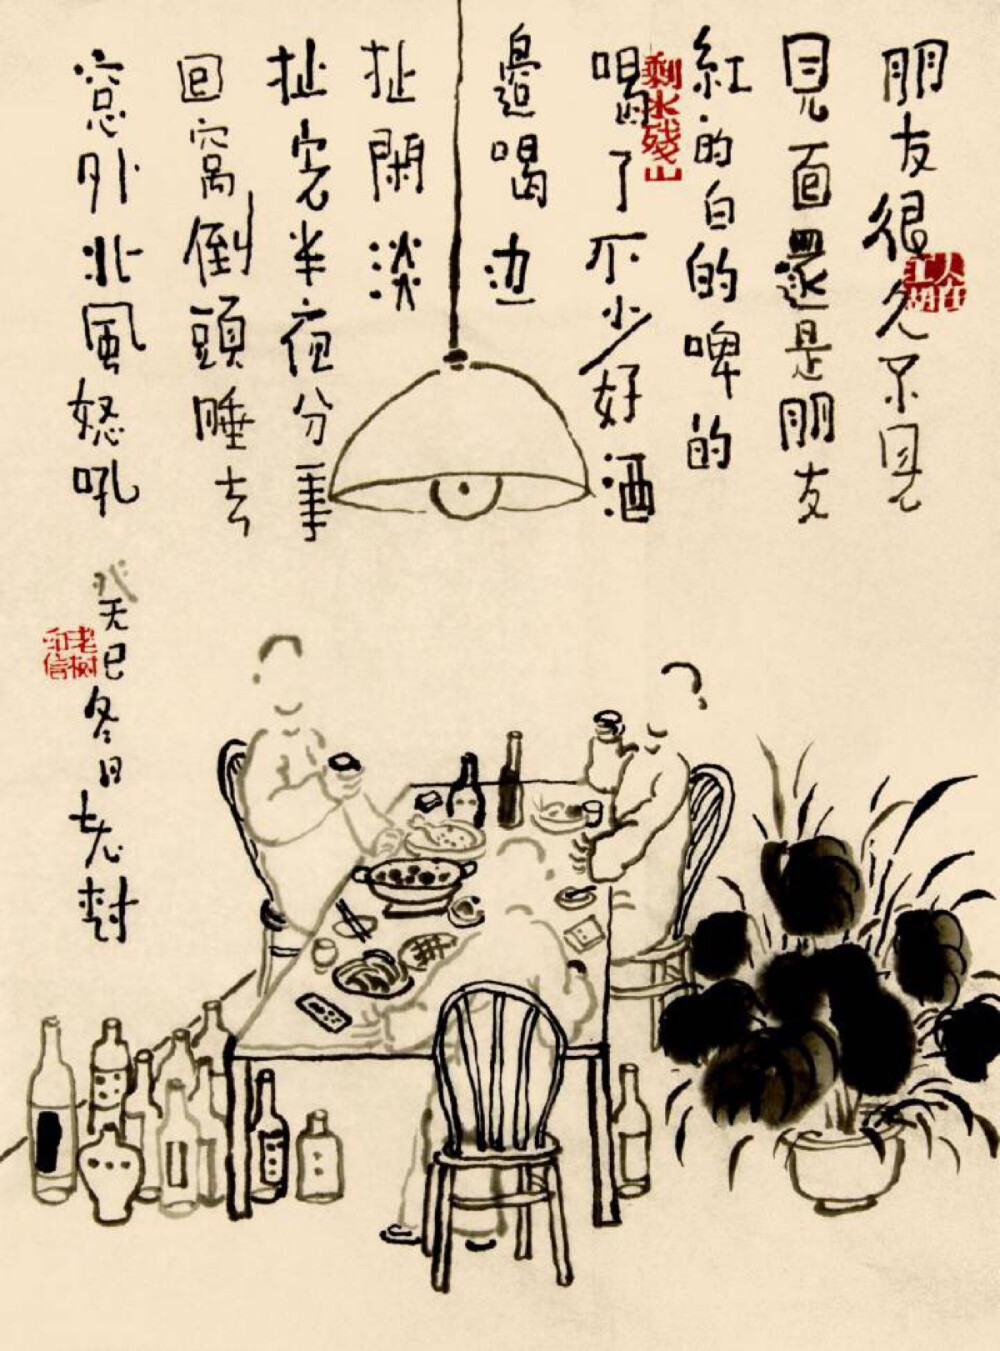 朋友很久不見
見面還是朋友
紅的白的啤的
喝了不少好酒
邊喝边
扯閑淡
扯完半夜分手
回窩倒頭睡去
窓外北風怒吼
癸巳冬日老樹
人在江湖
剩水殘山
老树印信